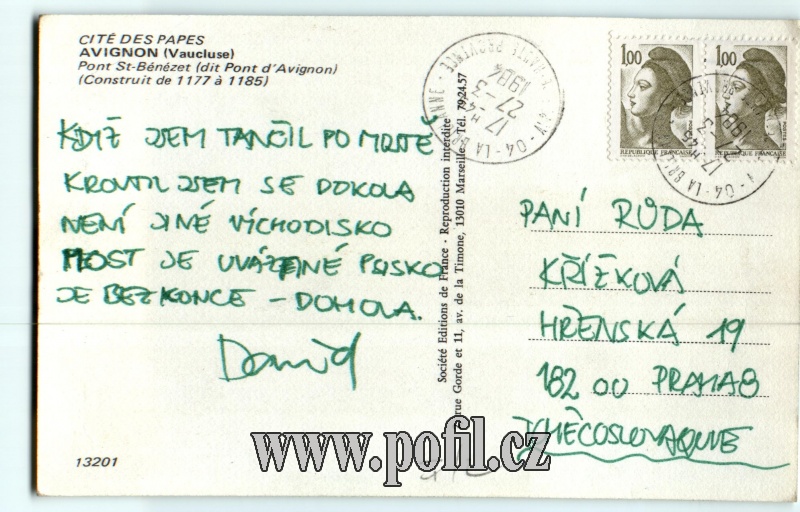 CITÉ DES PAPES
AVIGNON (Vaucluse)
Pont St-Bénézet (dit Pont d'Avignon)
(Construit de 1177 à 1185)
KDYŽ JSEM TANČIL PO MOSTĚ
KROUTIL JSEM SE DOKOLA
NENÍ JINÉ VÍCHODISKO
MOST JE UVÁZENÉ PRSKO
JE BEZ KONCE – DOHOLA.
David
13201
Société Editions de France - Reproduction interdite
rue Gorde et 11, av. de la Timone, 13010 Marseille - Tél. 79.24.57
04 - LA BR
17 H 45
27 - 3
1984
1,00
REPUBLIQUE FRANÇAISE
1,00
REPUBLIQUE FRANÇAISE
04 - LA BR
17 H 45
1984
PANÍ RŮDA
KŘÍŽKOVÁ
HŘENSKÁ 19
182 00 PRAHA 8
TCHÉCOSLOVAQUIE
www.pofil.cz